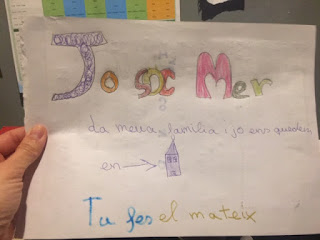 Jo soc Mer
La meva familia i jo ens quedem
en
Tu fes el mateix